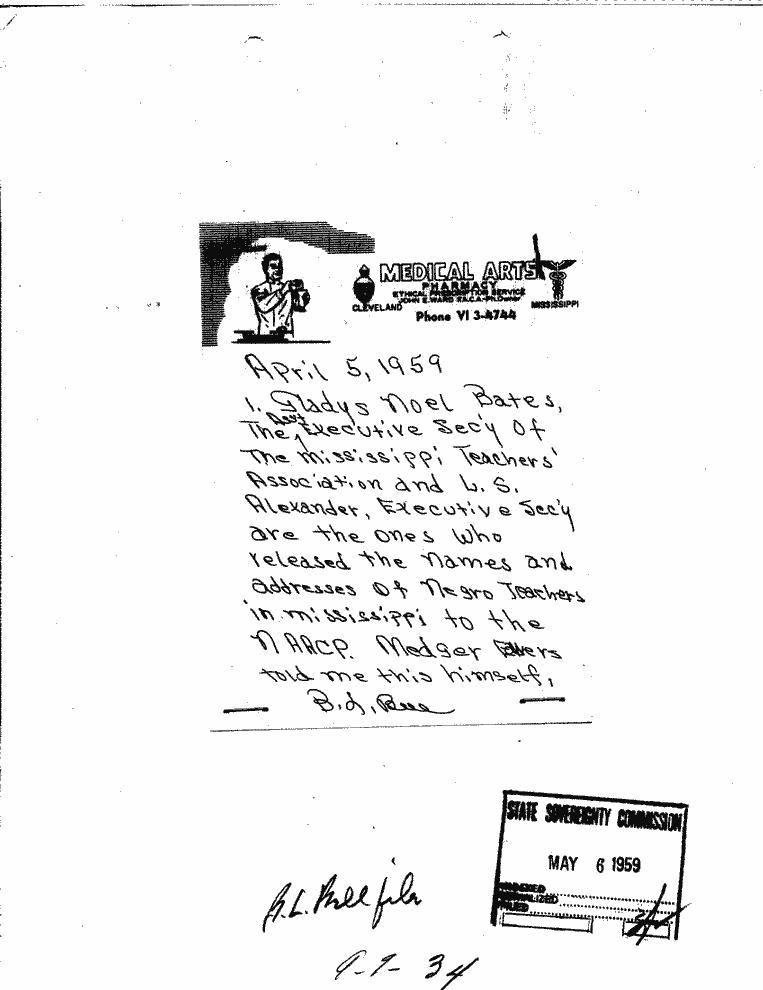 MEDICAL ARTS
PHARMACY
ETHICAL PRESCRIPTION SERVICE
JOHN E. WARD
CLEVELAND
MISSISSIPPI
Phone VI 3-4744
April 5, 1959
1. Gladys Noel Bates,
The Asst Executive Sec'y Of
The Mississippi Teachers'
Association and L. S.
Alexander, Executive Sec'y
are the ones who
released the names and
addresses Of Negro Teachers
in mississippi to the
NAACP. Medger Evers
told me this himself,
B. L. Bell
STATE SOVEREIGNTY COMMISSION
MAY 6 1959
INDEXED
SERIALIZED
FILED
B.L. Bell file
9-9-34